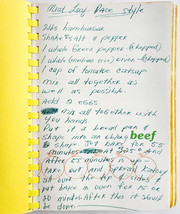 Meat Loaf Pace style
2 lbs hamburger
Salt & pepper
1 whole Green pepper (chopped)
1 whole (medium size) onion (chopped)
1 cup of tomatoe catsup
mix all together as
well as possible.
Add 2 eggs
mix all together with
you hands.
Put it a bread pan
Shape into an oblong beef
& shape. Just bake for 55
minutes at 325° And
After 55 minutes is up
take out and spread Ketchup
all over the top & sides
put back in oven for 15 or
20 minutes. After this it should
be done.